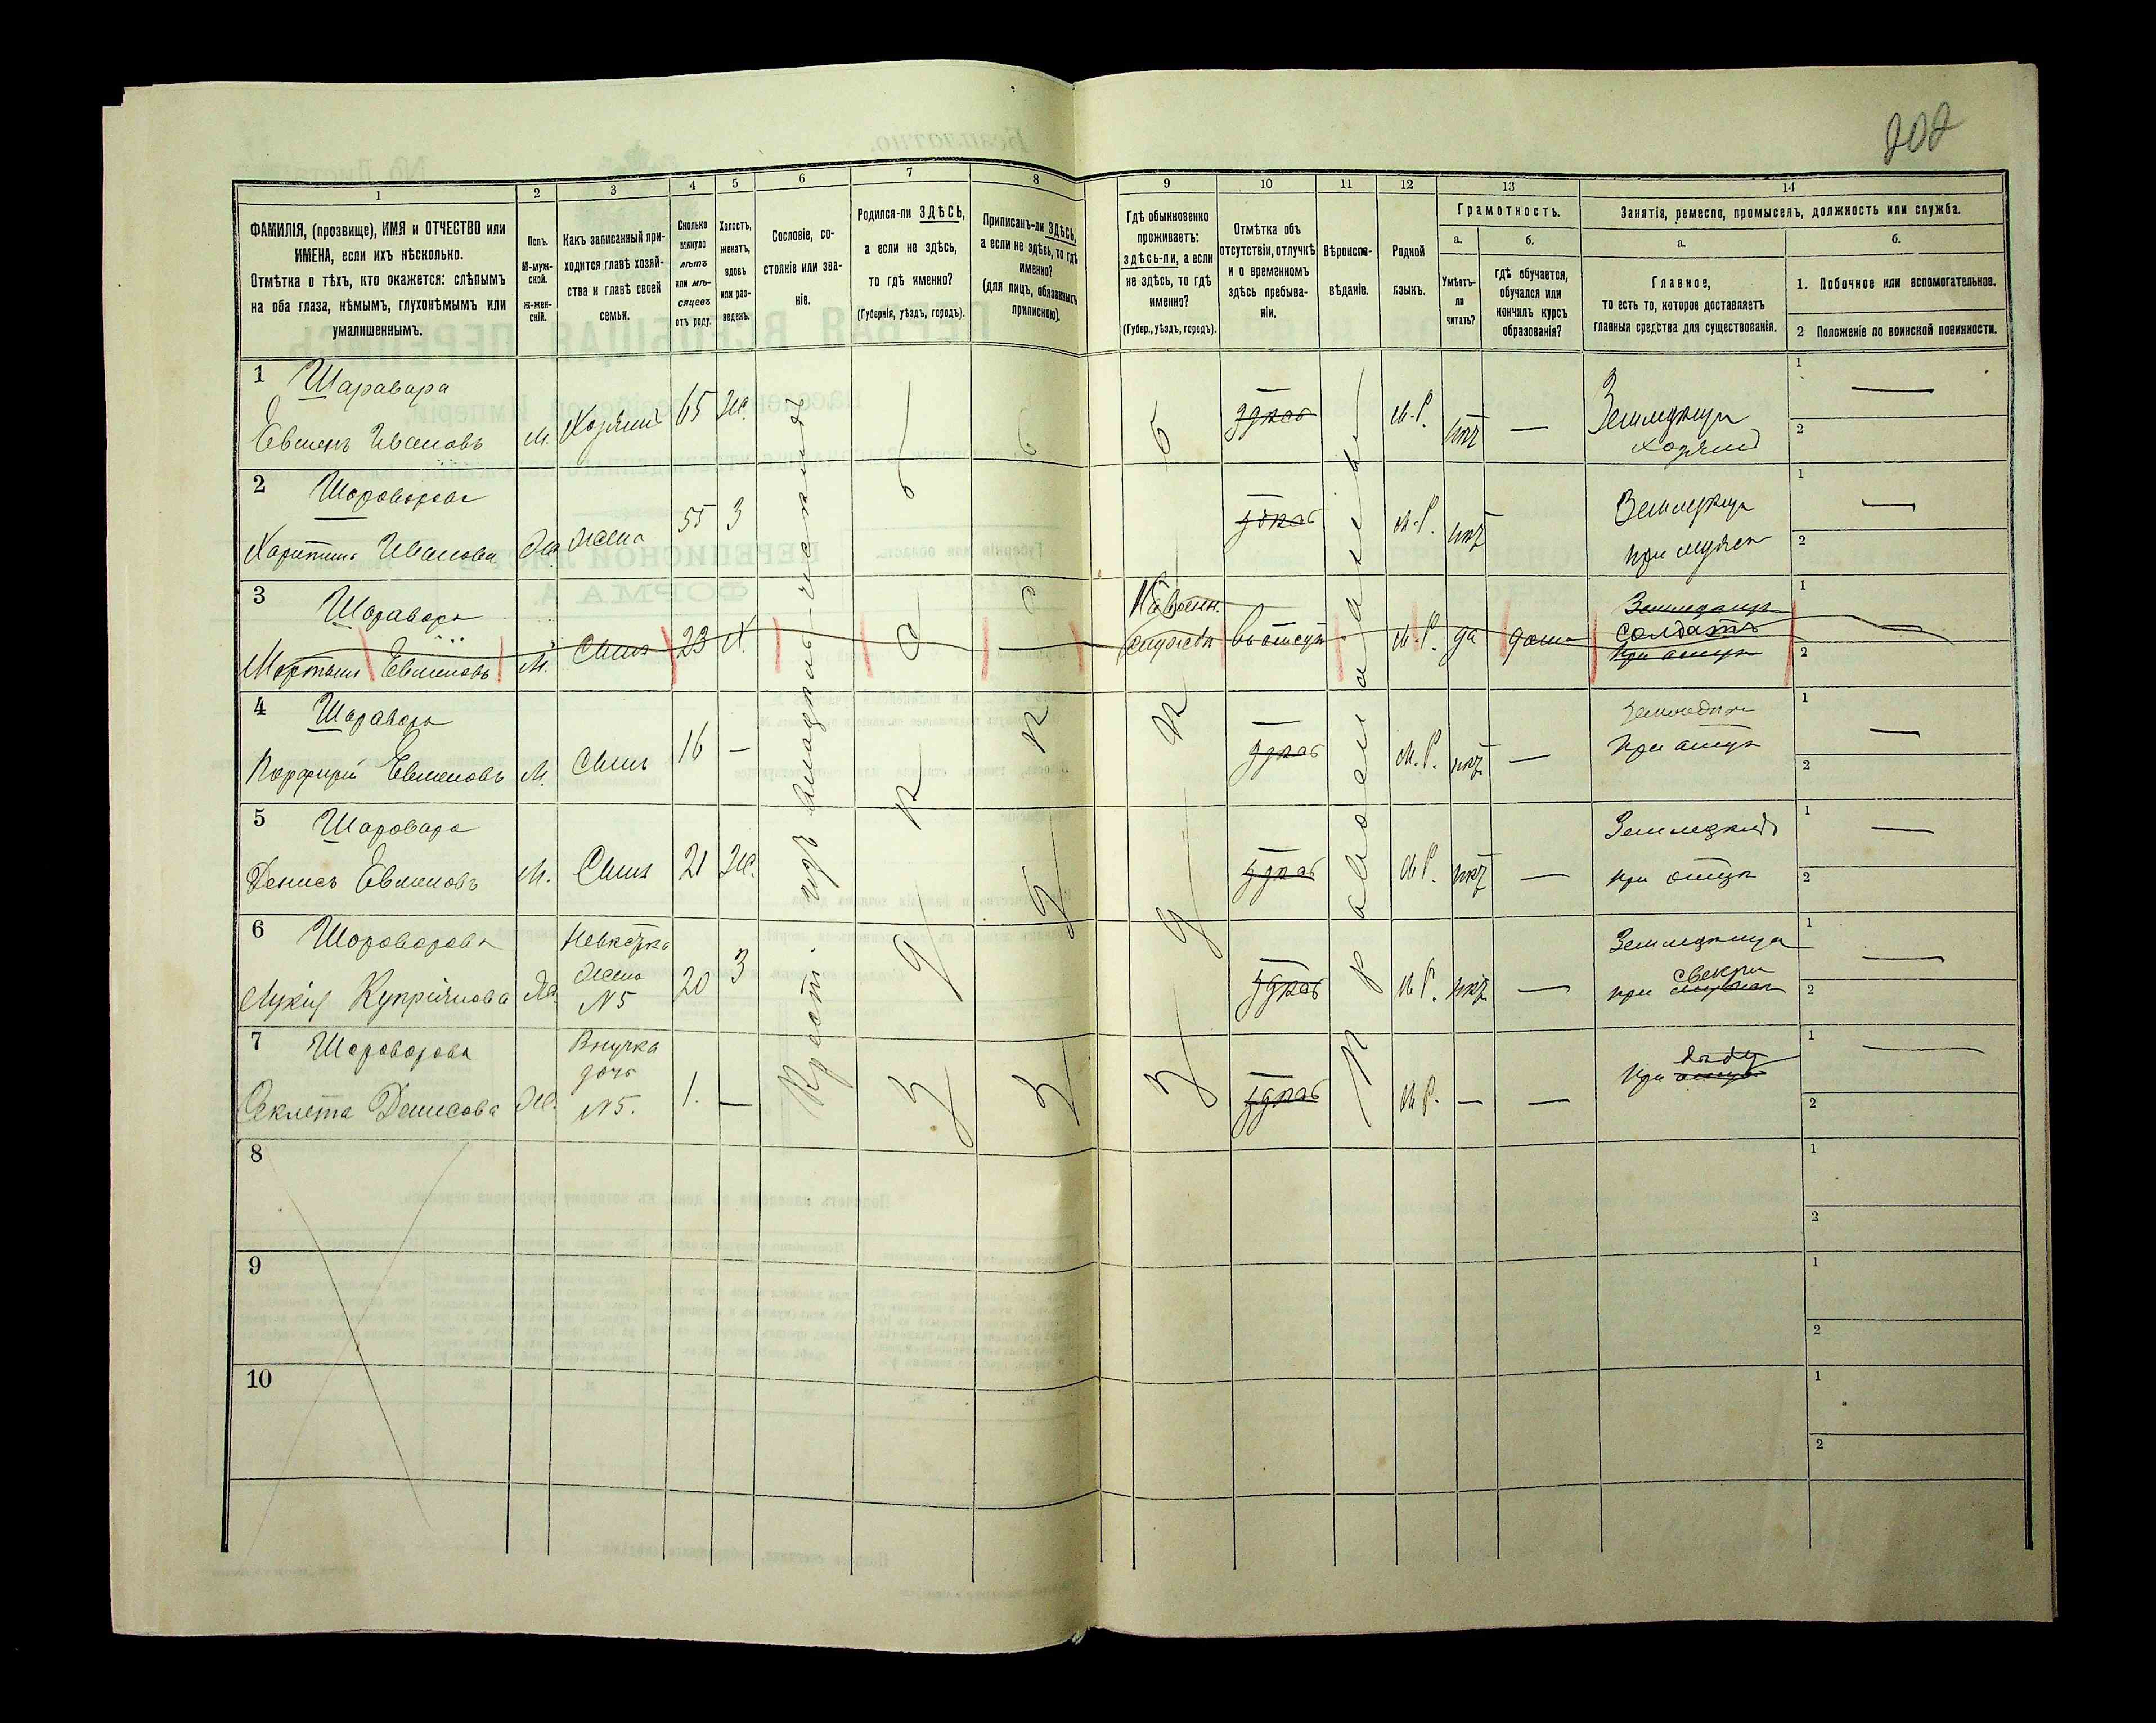 202
1
2
3
4
5
6
7
8
9
10
11
12
13
14
ФАМИЛІЯ, (прозвище), ИМЯ и ОТЧЕСТВО или
ИМЕНА, если ихъ нѣсколько.
Отмѣтка о тѣхъ, кто окажется: слѣпымъ
на оба глаза, нѣмымъ, глухонѣмымъ или
умалишеннымъ.
Полъ.
М-муж-
ской.
ж-жен-
скій.
Какъ записанный при-
ходится главѣ хозяй-
ства и главѣ своей
семьи.
Сколько
минуло
лѣтъ
или мѣ-
сяцевъ
отъ роду.
Холостъ,
женатъ,
вдовъ
или раз-
веденъ.
Сословіе, со-
стояніе или зва-
ніе.
Родился-ли ЗДѢСЬ,
а если не здѣсь,
то гдѣ именно?
(Губернія, уѣздъ, городъ).
Приписанъ-ли ЗДѢСЬ,
а если не здѣсь, то гдѣ
именно?
(для лицъ, обязанныхъ
припискою).
Гдѣ обыкновенно
проживаетъ:
здѣсь-ли, а если
не здѣсь, то гдѣ
именно?
(Губер., уѣздъ, городъ).
Отмѣтка объ
отсутствіи, отлучкѣ
и о временномъ
здѣсь пребыва-
ніи.
Вѣроиспо-
вѣданіе.
Родной
языкъ.
Грамотность.
а.
б.
Умѣетъ-
ли
читать?
гдѣ обучается,
обучался или
кончилъ курсъ
образованія?
Занятія, ремесло, промыселъ, должность или служба.
а.
б.
Главное,
то есть то, которое доставляетъ
главныя средства для существованія.
1. Побочное или вспомогательное.
2 Положеніе по воинской повинности.
1 Шаравара
Евменъ Ивановъ М. Хозяинъ 65 Ж.
здѣсь М.Р. нѣтъ —
Земледѣлецъ
хозяинъ
2 Шароварова
Харитина Иванова Ж. жена 55 З
здѣсь М.Р. нѣтъ
при мужѣ
3 Шаравара
Мартынъ Евменовъ М. Сынъ 23 Х.
На военн.
службѣ
М.Р. да дома
Солдатъ
при отцѣ
4 Шаравара
Порфирій Евменовъ М. Сынъ 16 —
здѣсь М.Р. нѣтъ —
при отцѣ
5 Шаровара
Денисъ Евменовъ М. Сынъ 21 Ж.
здѣсь М.Р. нѣтъ —
при отцѣ
6 Шароварова
Лукія Купріянова Ж.
Невѣстка
жена
№5
20 З
здѣсь М.Р. нѣтъ —
при свекрѣ
7 Шароварова
Феклета Денисова Ж.
Внучка
дочь
№5.
1. —
здѣсь М.Р. — —
при
Крест. изъ владѣльческихъ
здѣсь
Православный
8
9
10